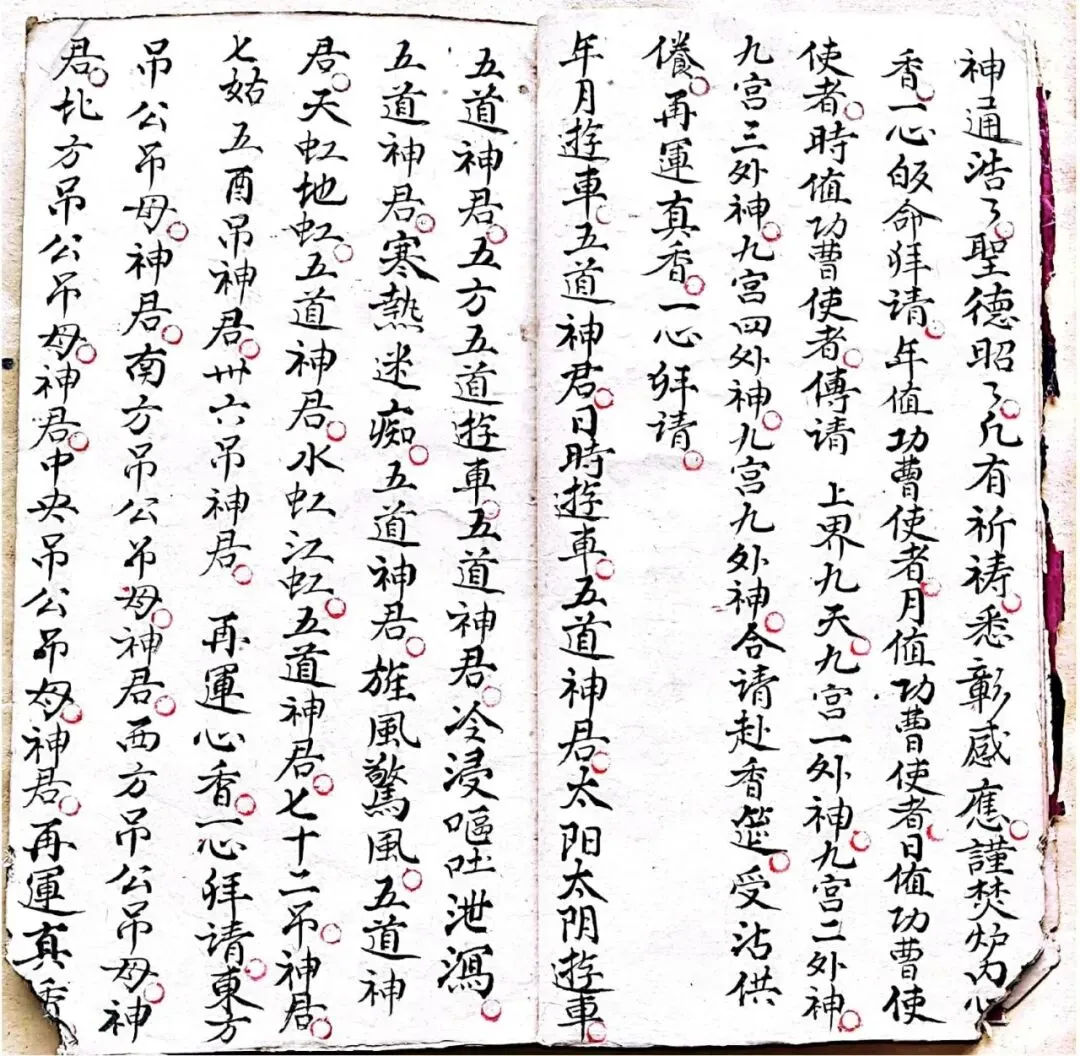 神通浩々聖德昭々凢有祈祷悉彰感應謹焚炉内心
香一心皈命拜请年值功曹使者月值功曹使者日值功曹使
使者時值功曹使者傳请 上界九天九宫一外神九宫二外神
九宫三外神九宫四外神九宫九外神合请赴香筵受沾供
僊再運真香一心拜请
年月遊車五道神君日時遊車五道神君太阳太阴遊車
五道神君五方五道遊車五道神君冷浸嘔吐泄瀉
五道神君寒熱迷痴五道神君旋風驚風五道神
君天虹地虹五道神君水虹江虹五道神君七十二吊神君
七姑五酉吊神君卅六吊神君 再運心香一心拜請東方
吊公吊母神君南方吊公吊母神君西方吊公吊母神
君北方吊公吊母神君中央吊公吊母神君再運真香